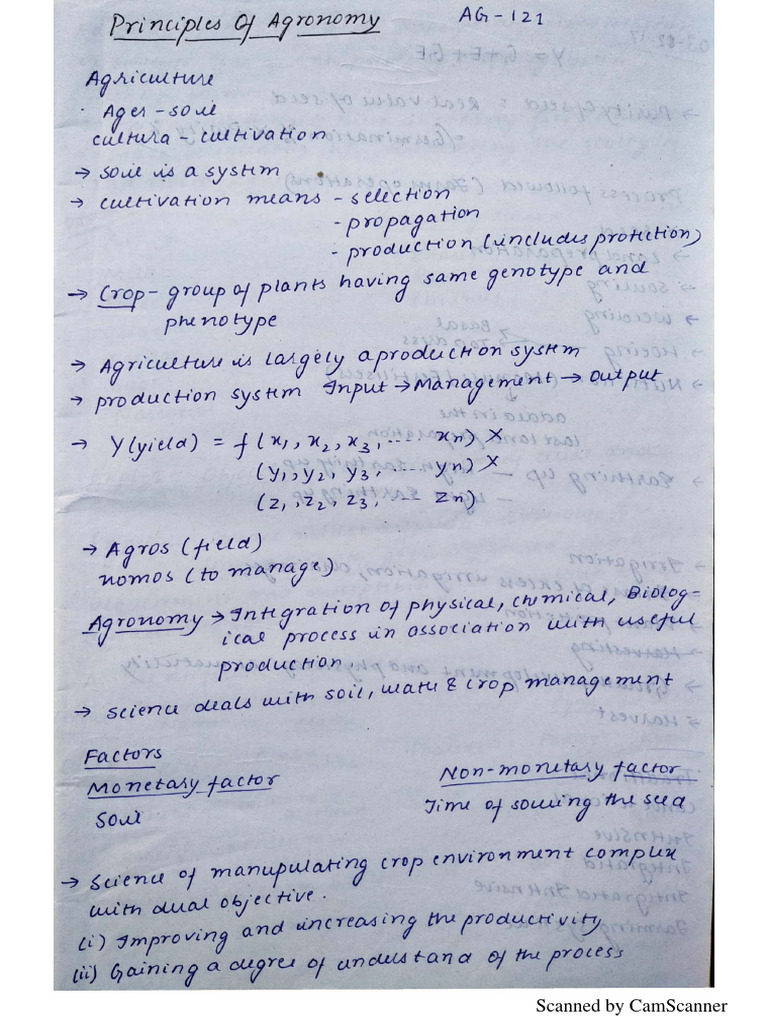 Principles Of Agronomy AG-121
Agriculture
Ager - soil
cultura - cultivation
→ soil is a system
→ cultivation means - selection
- propagation
- production (includes protection)
→ Crop - group of plants having same genotype and
phenotype
→ Agriculture is largely a production system
→ production system Input → Management → output
→ Y(yield) = f(x1, x2, x3, ---- xn) X
(y1, y2, y3, ---- yn) X
(z1, z2, z3, --- zn)
→ Agros (field)
nomos (to manage)
Agronomy → Integration of physical, chemical, Biolog-
ical process in association with useful
production
→ science deals with soil, water & crop management
Factors
Monetary factor Non-monetary factor
Soil Time of sowing the seed
→ Science of manupulating crop environment complex
with dual objective.
(i) Improving and increasing the productivity
(ii) Gaining a degree of understand of the process
Scanned by CamScanner